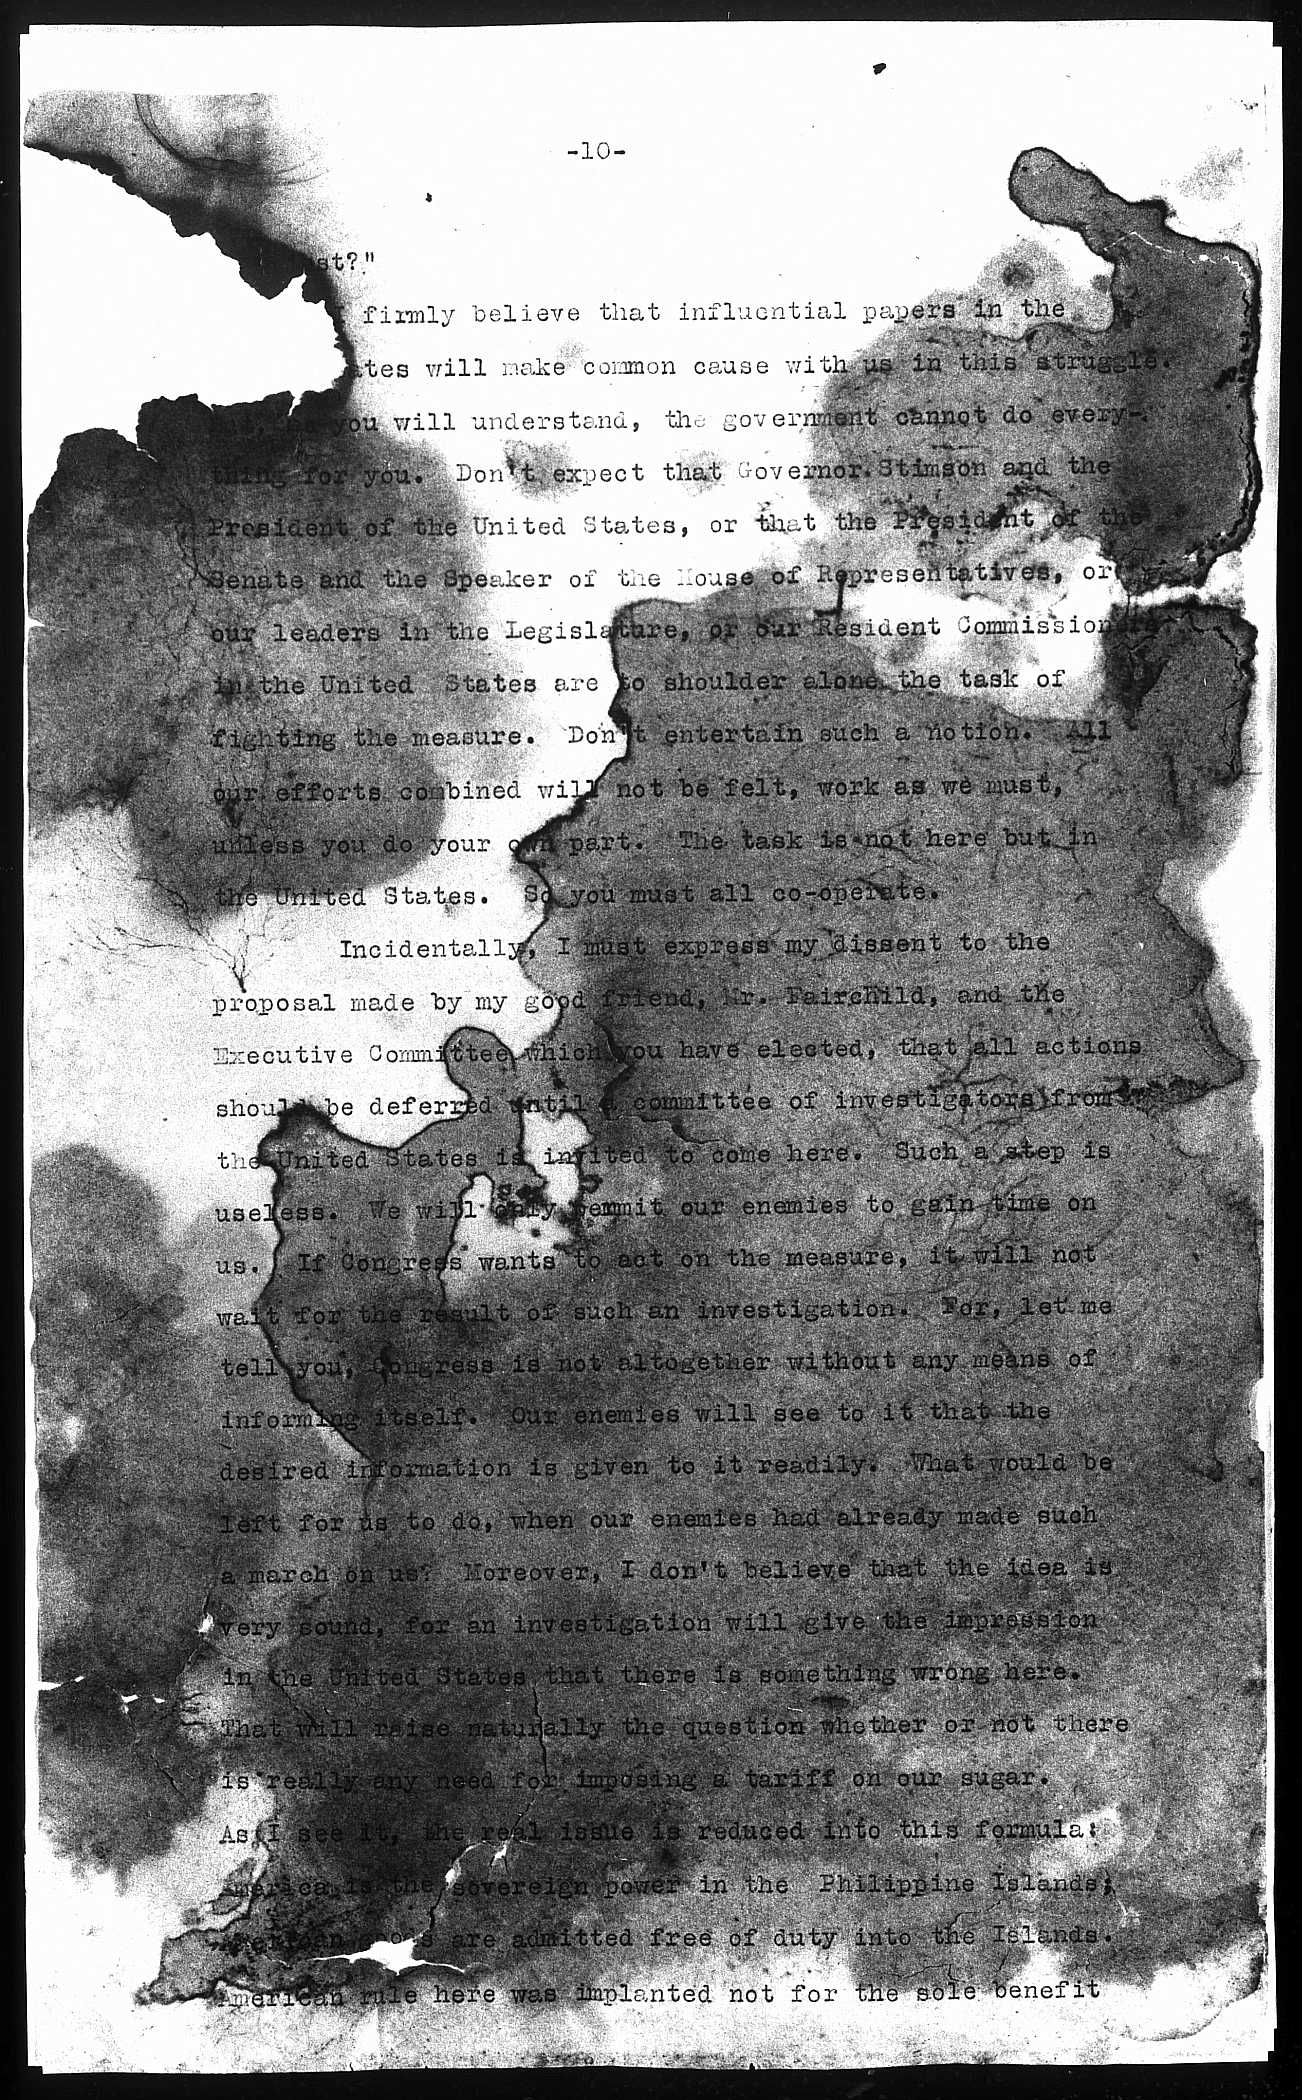 -10-
st?"
firmly believe that influential papers in the
tes will make common cause with us in this struggle.
you will understand, the government cannot do every-
thing for you. Don't expect that Governor Stimson and the
President of the United States, or that the President of the
Senate and the Speaker of the House of Representatives, or
our leaders in the Legislature, or our Resident Commissioners
in the United States are to shoulder alone the task of
fighting the measure. Don't entertain such a notion. All
our efforts combined will not be felt, work as we must,
unless you do your own part. The task is not here but in
the United States. So you must all co-operate.
Incidentally, I must express my dissent to the
proposal made by my good friend, Mr. Fairchild, and the
Executive Committee which you have elected, that all actions
should be deferred until a committee of investigators from
the United States is invited to come here. Such a step is
useless. We will only permit our enemies to gain time on
us. If Congress wants to act on the measure, it will not
wait for the result of such an investigation. For, let me
tell you, Congress is not altogether without any means of
informing itself. Our enemies will see to it that the
desired information is given to it readily. What would be
left for us to do, when our enemies had already made such
a march on us? Moreover, I don't believe that the idea is
very sound, for an investigation will give the impression
in the United States that there is something wrong here.
That will raise naturally the question whether or not there
is really any need for imposing a tariff on our sugar.
As I see it, the real issue is reduced into this formula:
America is the sovereign power in the Philippine Islands;
American goods are admitted free of duty into the Islands.
American rule here was implanted not for the sole benefit